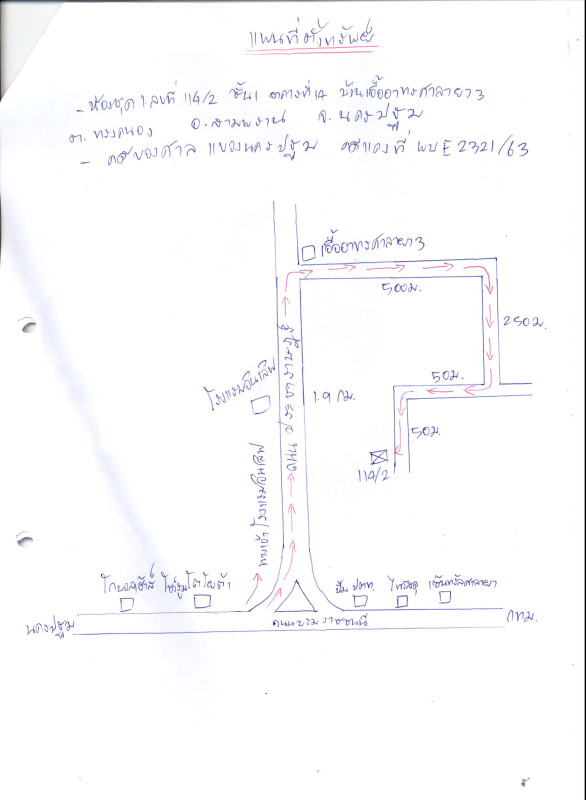 แผนที่ตั้งทรัพย์
- ห้องชุด เลขที่ 114/2 ชั้น 1 อาคารที่ 14 บ้านเอื้ออาทรศาลายา 3
ต. ทรงคนอง อ. สามพราน จ. นครปฐม
- คดีของศาล แขวงนครปฐม คดีแดงที่ ผบE 2321/63
เอื้ออาทรศาลายา 3
500ม.
250ม.
50ม.
50ม.
114/2
1.9 กม.
ถนน ประชาราษฎร์
โรงแรมอินเลิฟ
ทางเข้าโรงแรมอินเลิฟ
โกบอลเฮ้าส์
โชว์รูมโตโยต้า
ปั๊ม ปตท.
ไทวัสดุ
เซ็นทรัลศาลายา
นครปฐม
ถนนบรมราชชนนี
กทม.